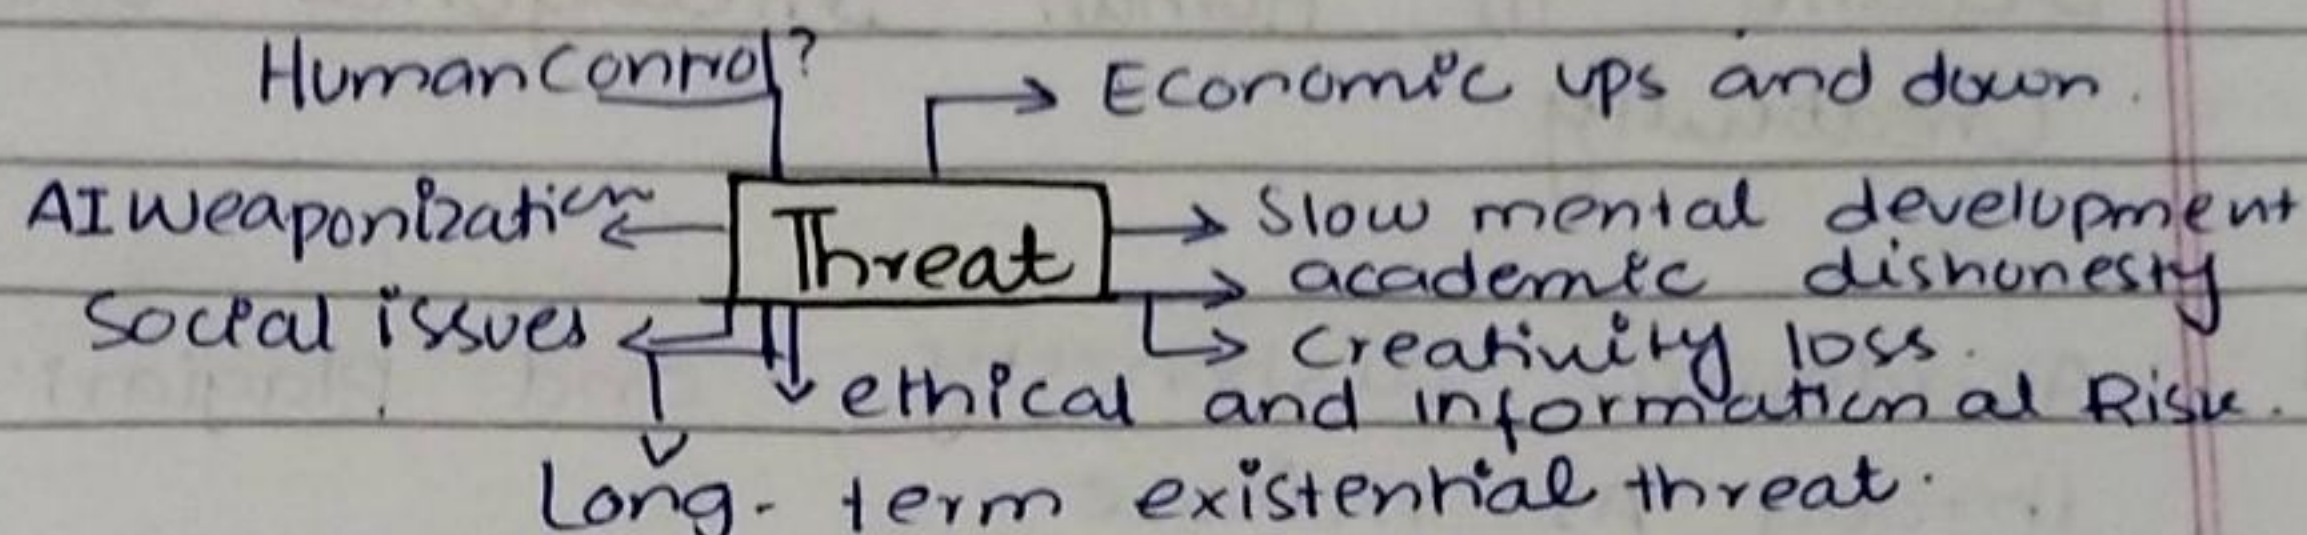 Human Control?
Economic ups and down.
AI Weaponization
Threat
Slow mental development
academic dishonesty
Social issues
Creativity loss.
ethical and informational Risk.
Long-term existential threat.